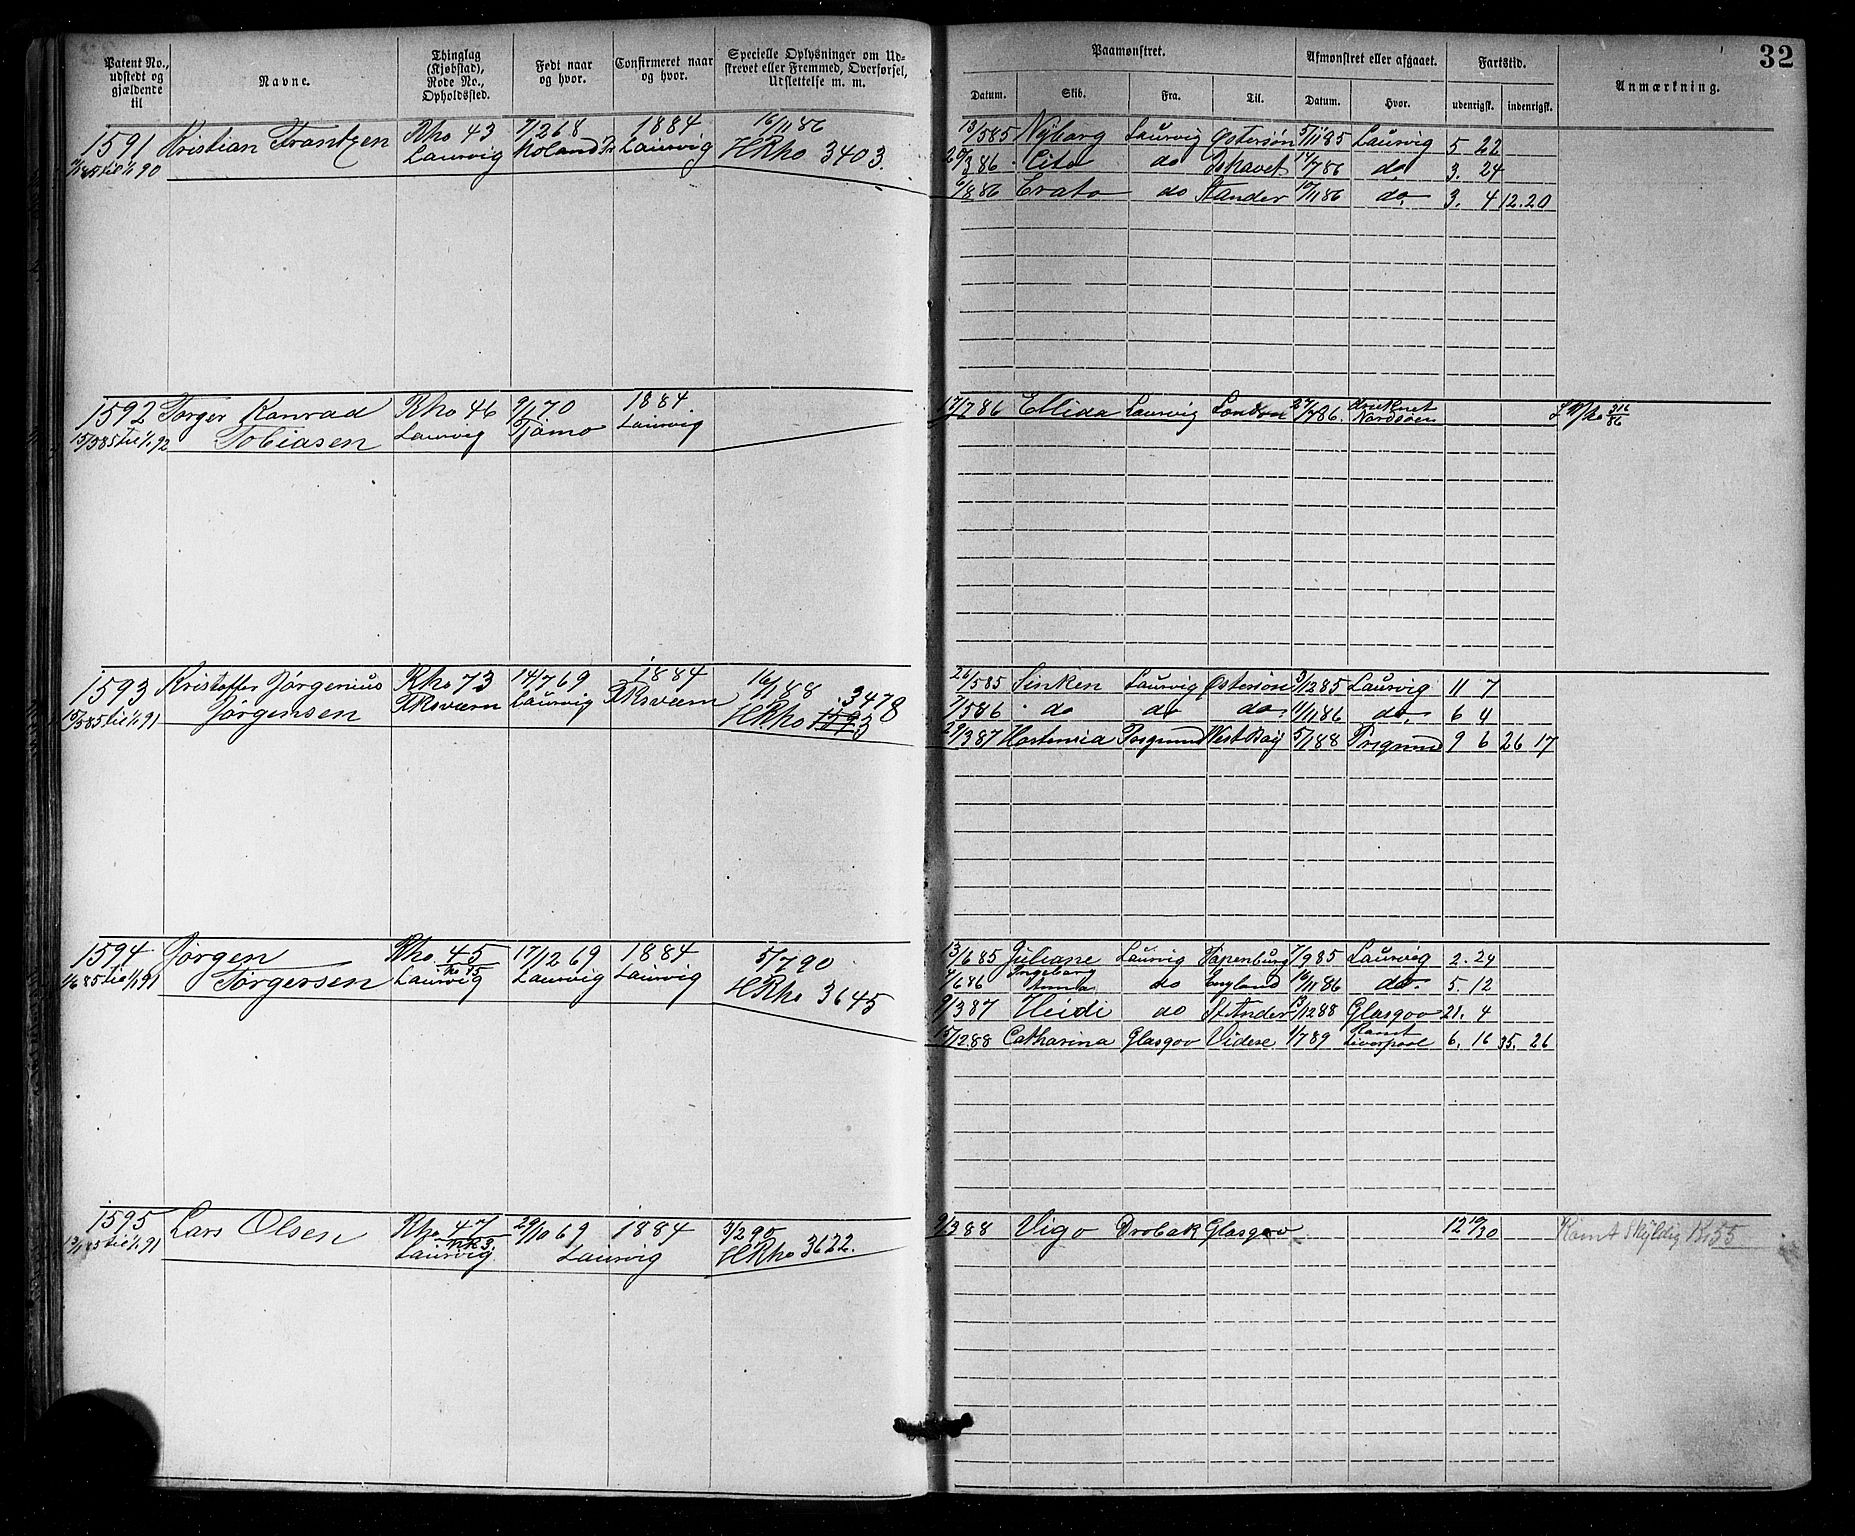 32
Patent No., udstedt og gjældende til
Navne.
Thinglag (Kjøbstad), Rode No., Opholdssted.
Født naar og hvor.
Confirmeret naar og hvor.
Specielle Oplysninger om Udskrevet eller Fremmed, Overførsel, Udslettelse m. m.
Paamønstret.
Afmønstret eller afgaaet.
Fartstid.
Anmærkning.
Datum. Skib. Fra. Til. Datum. Hvor. udenrigsk. indenrigsk.
1591 Kristian Frantzen Rno 43 7/2 68 1884 16/11 86
til 1/1 90 Laurvig Laurvig HRno 3403.
13/5 85 Nyborg Laurvig Østersøn 5/11 85 Laurvig 5 22
20/3 86 Cito do Ishavet 14/7 86 do 3. 24
6/8 86 Erato do St Ander 10/11 86 do. 3. 4 12.20
1592 Torger Konrad Rno 46 9/1 70 1884.
15/3 85 til 1/1 92 Tobiasen Laurvig Tjømø Laurvig
17/7 86 Ellida Laurvig London 27/7 86. druknet Nordsøen
1593 Kristoffer Jørgenius Rno 73 14/7 69 1884 16/1 88 3478
15/3 85 til 1/1 91 Jørgensen FKsværn Laurvig FKsværn HRno 1593
26/5 85 Sinken Laurvig Østersøn 3/12 85 Laurvig 11 7
7/5 86 do do do. 11/11 86 do. 6 4
29/3 87 Hortensia Porsgrund West Bay 5/1 88 Porsgrund 9 6 26 17
1594 Jørgen Rno. 45 17/12 69 1884 5/7 90
1/6 85 til 1/1 91 Torgersen Laurvig Laurvig Laurvig HRno 3645
13/6 85 Juliane Laurvig Papenburg 7/9 85 Laurvig 2. 24
4/6 86 Ingeborg Anna do England 10/11 86 do. 5. 12
9/3 87 Heidi do St Ander 13/12 88 Glasgow 21. 4
15/12 88 Catharina Glasgow Videre 1/7 89 Rømt Liverpool 6. 16 35. 26
1595 Lars Olsen Rno 47 29/10 69 1884 3/2 90
13/1 85 til 1/1 91 Laurvig Laurvig HRno 3622.
9/3 88 Vigo Drøbak Glasgow 12 10/30 Rømt Skyldig Kr 55